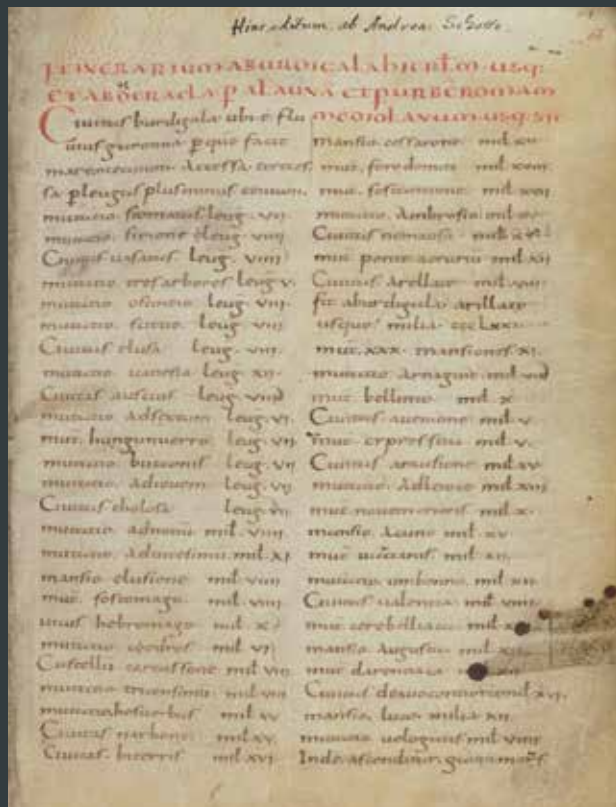 Hinc editum ab Andrea Schotto.
ITINERARIUM A BURDIGALA HIERLEM USQ:
ET AB ERACLA P AULONA ET P URBE ROMAM
MEDIOLANUM USQ: SIC
Ciuitas burdigala ubi e flu
uius garonna p que facit
mutatio stomatas leug. VII
mutatio sirione leug. VIIII
Ciuitas uasatis leug. VIIII
mutatio tres arbores leug. V.
mutatio oscineio leug. VIII.
mutatio scittio leug. VIII
Ciuitas elusa leug. VIII.
mutatio uanesia leug. XII.
Ciuitas auscius leug. VIII
mutatio ad sextum leug. VI.
mut. hungunuerro leug. VII
mutatio bucconis leug. VII
mutatio ad iouem leug. VII
Ciuitas tholosa leug. VII
mutatio ad nonum mil. VIIII
mutatio ad uicesimum mil. XI
mansio elusione mil. VIIII
mut. sostomago mil. VIIII
uicus hebromago mil. X
mutatio cedros mil. VI
Castellum carcassone mil. VIII
mutatio tricensimum mil. VIII
mutatio hosuerbas mil. XV
Ciuitas narbone mil. XV.
Ciuitas biterris mil. XVI
mansio cessarone mil. XII
mut. foro domiti mil. XVIII
mutatio ambrosio mil. XV
Ciuitas nemauso
mut. ponte aerariu mil. XII
Ciuitas arellate mil. VIII
fit a burdigala arillate
usque milia CCCLXXI
mut. XXX. mansiones XI.
mutatio arnagine mil. VIII
mut. bellinto mil. X
Ciuitas auenione mil. V
mut. cypresseta mil. V.
Ciuitas arausione mil. XV
mutatio ad letoce mil. XIII
mut. nouem craris mil. X.
mansio acuno mil. XV
mut. uancianis mil. XII
mutatio umbenno mil. XII
Ciuitas ualentia mil. VIIII
mut. cerebelliaca mil.
mansio augusta mil.
mut. darentiaca
Ciuitas dea uocontiorum mil. XVI.
mansio luco milia XII
mutatio uologatis mil. VIIII
Inde ascenditur gaura mons